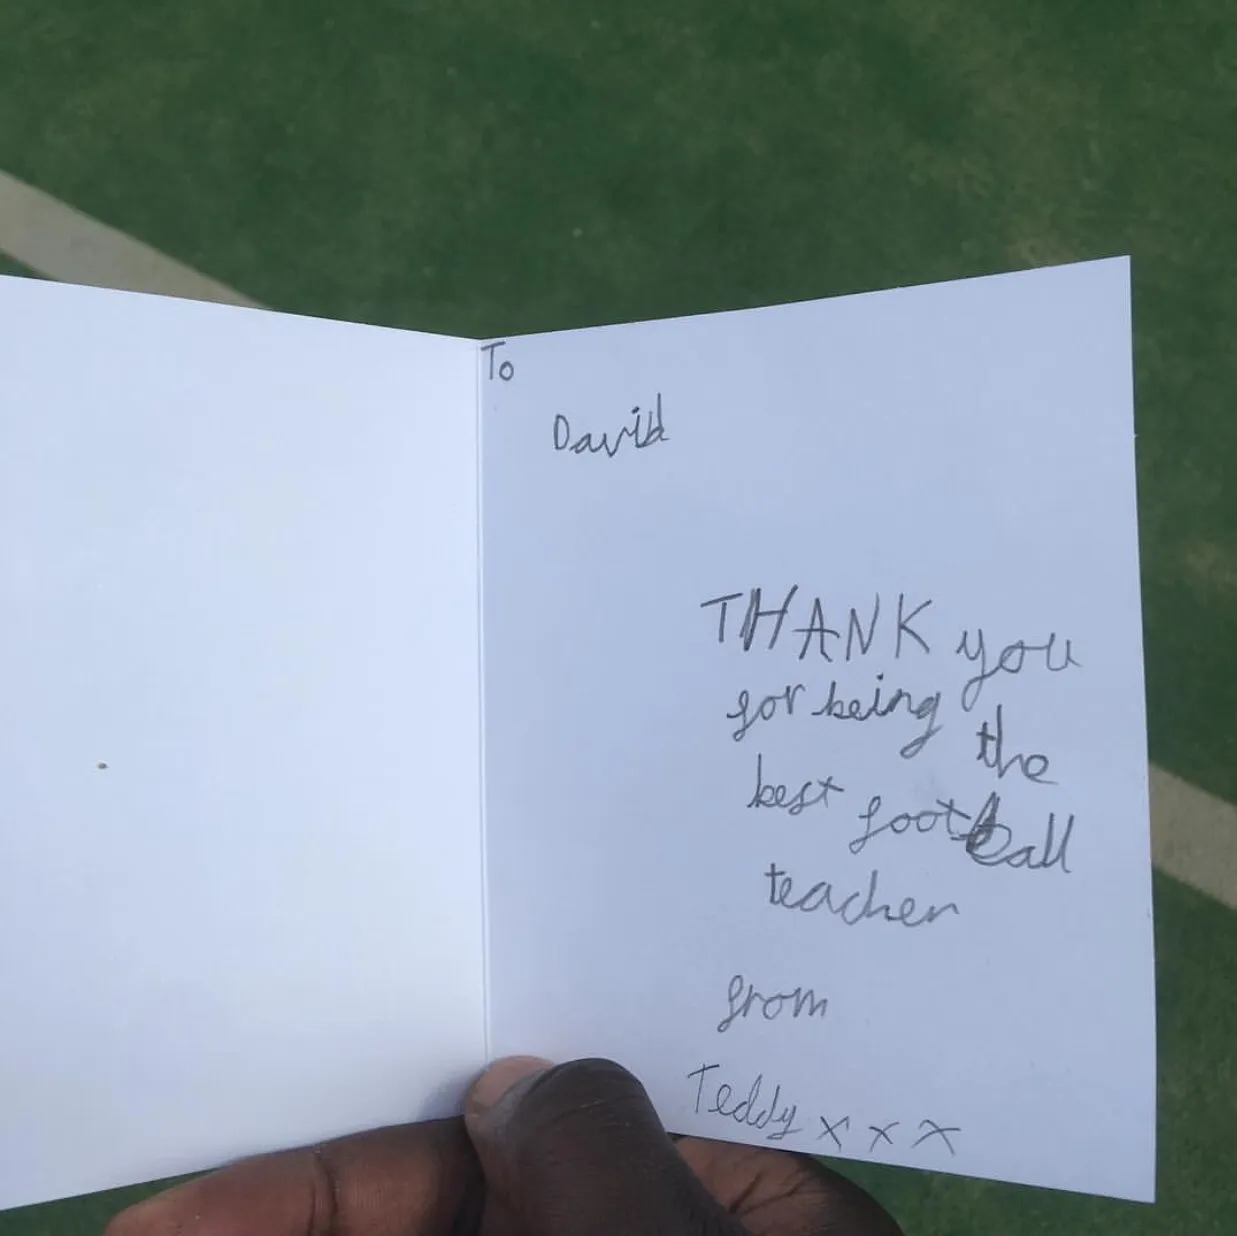 To
David
THANK you
for being the
best football
teacher
from
Teddy x x x